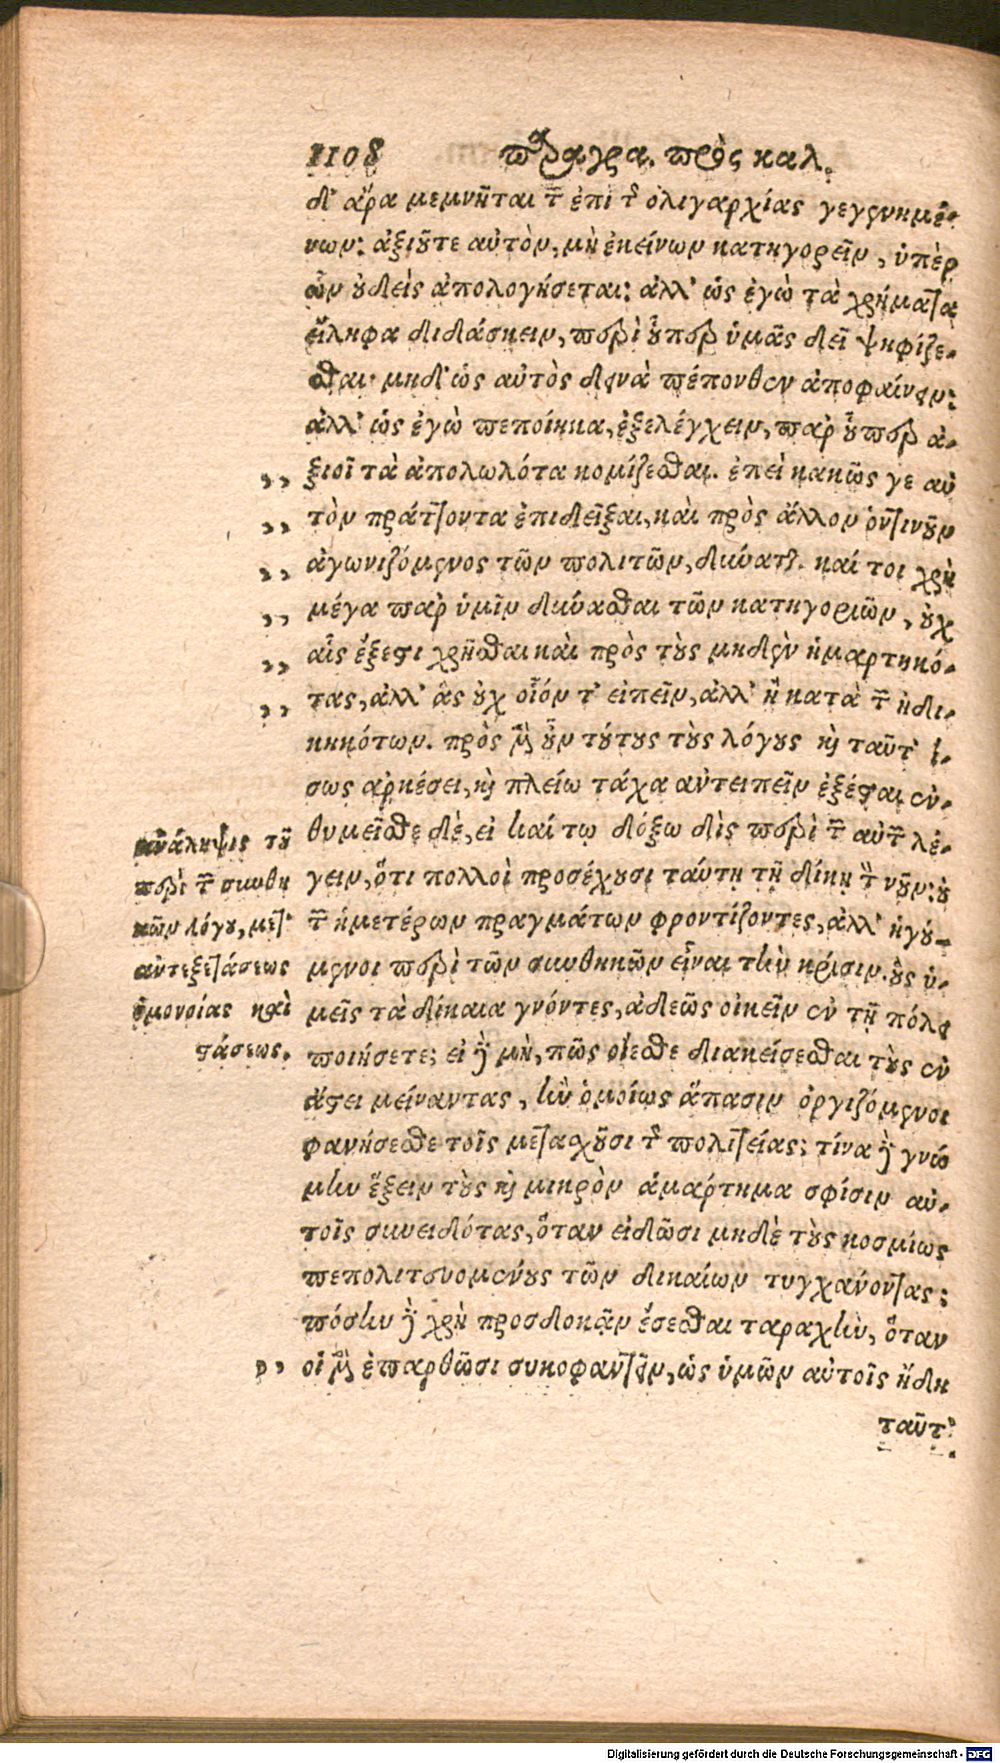 1108 παραγρα. πρὸς καλ.
δ' ἄρα μεμνῆται τῶν ἐπὶ τῆς ὀλιγαρχίας γεγενημέ-
νων: ἀξιοῦτε αὐτὸν, μὴ ἐκείνων κατηγορεῖν, ὑπὲρ
ὧν οὐδεὶς ἀπολογήσεται: ἀλλ' ὡς ἐγὼ τὰ χρήματα
εἴληφα διδάσκειν, περὶ οὗπερ ὑμᾶς δεῖ ψηφίζε-
σθαι· μηδ' ὡς αὐτὸς δεινὰ πέπονθεν ἀποφαίνειν:
ἀλλ' ὡς ἐγὼ πεποίηκα, ἐξελέγχειν, παρ' οὗπερ ἀ-
,, ξιοῖ τὰ ἀπολωλότα κομίζεσθαι. ἐπεὶ κακῶς γε αὐ
,, τὸν πράττοντα ἐπιδεῖξαι, καὶ πρὸς ἄλλον ὁντινοῦν
,, ἀγωνιζόμενος τῶν πολιτῶν, δύναται. καί τοι χρὴ
,, μέγα παρ' ὑμῖν δύνασθαι τῶν κατηγοριῶν, οὐχ
,, αἷς ἔξεστι χρῆσθαι καὶ πρὸς τοὺς μηδὲν ἡμαρτηκό-
,, τας, ἀλλ' ἃς οὐχ οἷόν τ' εἰπεῖν, ἀλλ' ἢ κατὰ τῶν ἠδι-
κηκότων. πρὸς μὲν οὖν τούτους τοὺς λόγους καὶ ταῦτ' ἴ-
σως ἀρκέσει, καὶ πλείω τάχα ἀντειπεῖν ἐξέσται ἐν-
θυμεῖσθε δὲ, εἰ καί τῳ δόξω δὶς περὶ τῶν αὐτῶν λέ-
γειν, ὅτι πολλοὶ προσέχουσι ταύτῃ τῇ δίκῃ τὸν νοῦν: οὐ
τῶν ἡμετέρων πραγμάτων φροντίζοντες, ἀλλ' ἡγού-
μενοι περὶ τῶν συνθηκῶν εἶναι τὴν κρίσιν. οὓς ὑ-
μεῖς τὰ δίκαια γνόντες, ἀδεῶς οἰκεῖν ἐν τῇ πόλει
ποιήσετε: εἰ δὲ μὴ, πῶς οἴεσθε διακείσεσθαι τοὺς ἐν
ἄστει μείναντας, ἢν ὁμοίως ἅπασιν ὀργιζόμενοι
φανήσεσθε τοῖς μετασχοῦσι τῆς πολιτείας; τίνα δὲ γνώ
μην ἕξειν τοὺς καὶ μικρὸν ἁμάρτημα σφίσιν αὐ-
τοῖς συνειδότας, ὅταν εἰδῶσι μηδὲ τοὺς κοσμίως
πεπολιτευομένους τῶν δικαίων τυγχάνοντας;
πόσην δὲ χρὴ προσδοκᾷν ἔσεσθαι ταραχὴν, ὅταν
,, οἱ μὲν ἐπαρθῶσι συκοφαντεῖν, ὡς ὑμῶν αὐτοῖς ἤδη
ταῦτ'
ἀνάληψις τοῦ
περὶ τῶν συνθη
κῶν λόγου, μετ'
ἀντεξετάσεως
ὁμονοίας καὶ
στάσεως.
Digitalisierung gefördert durch die Deutsche Forschungsgemeinschaft - DFG